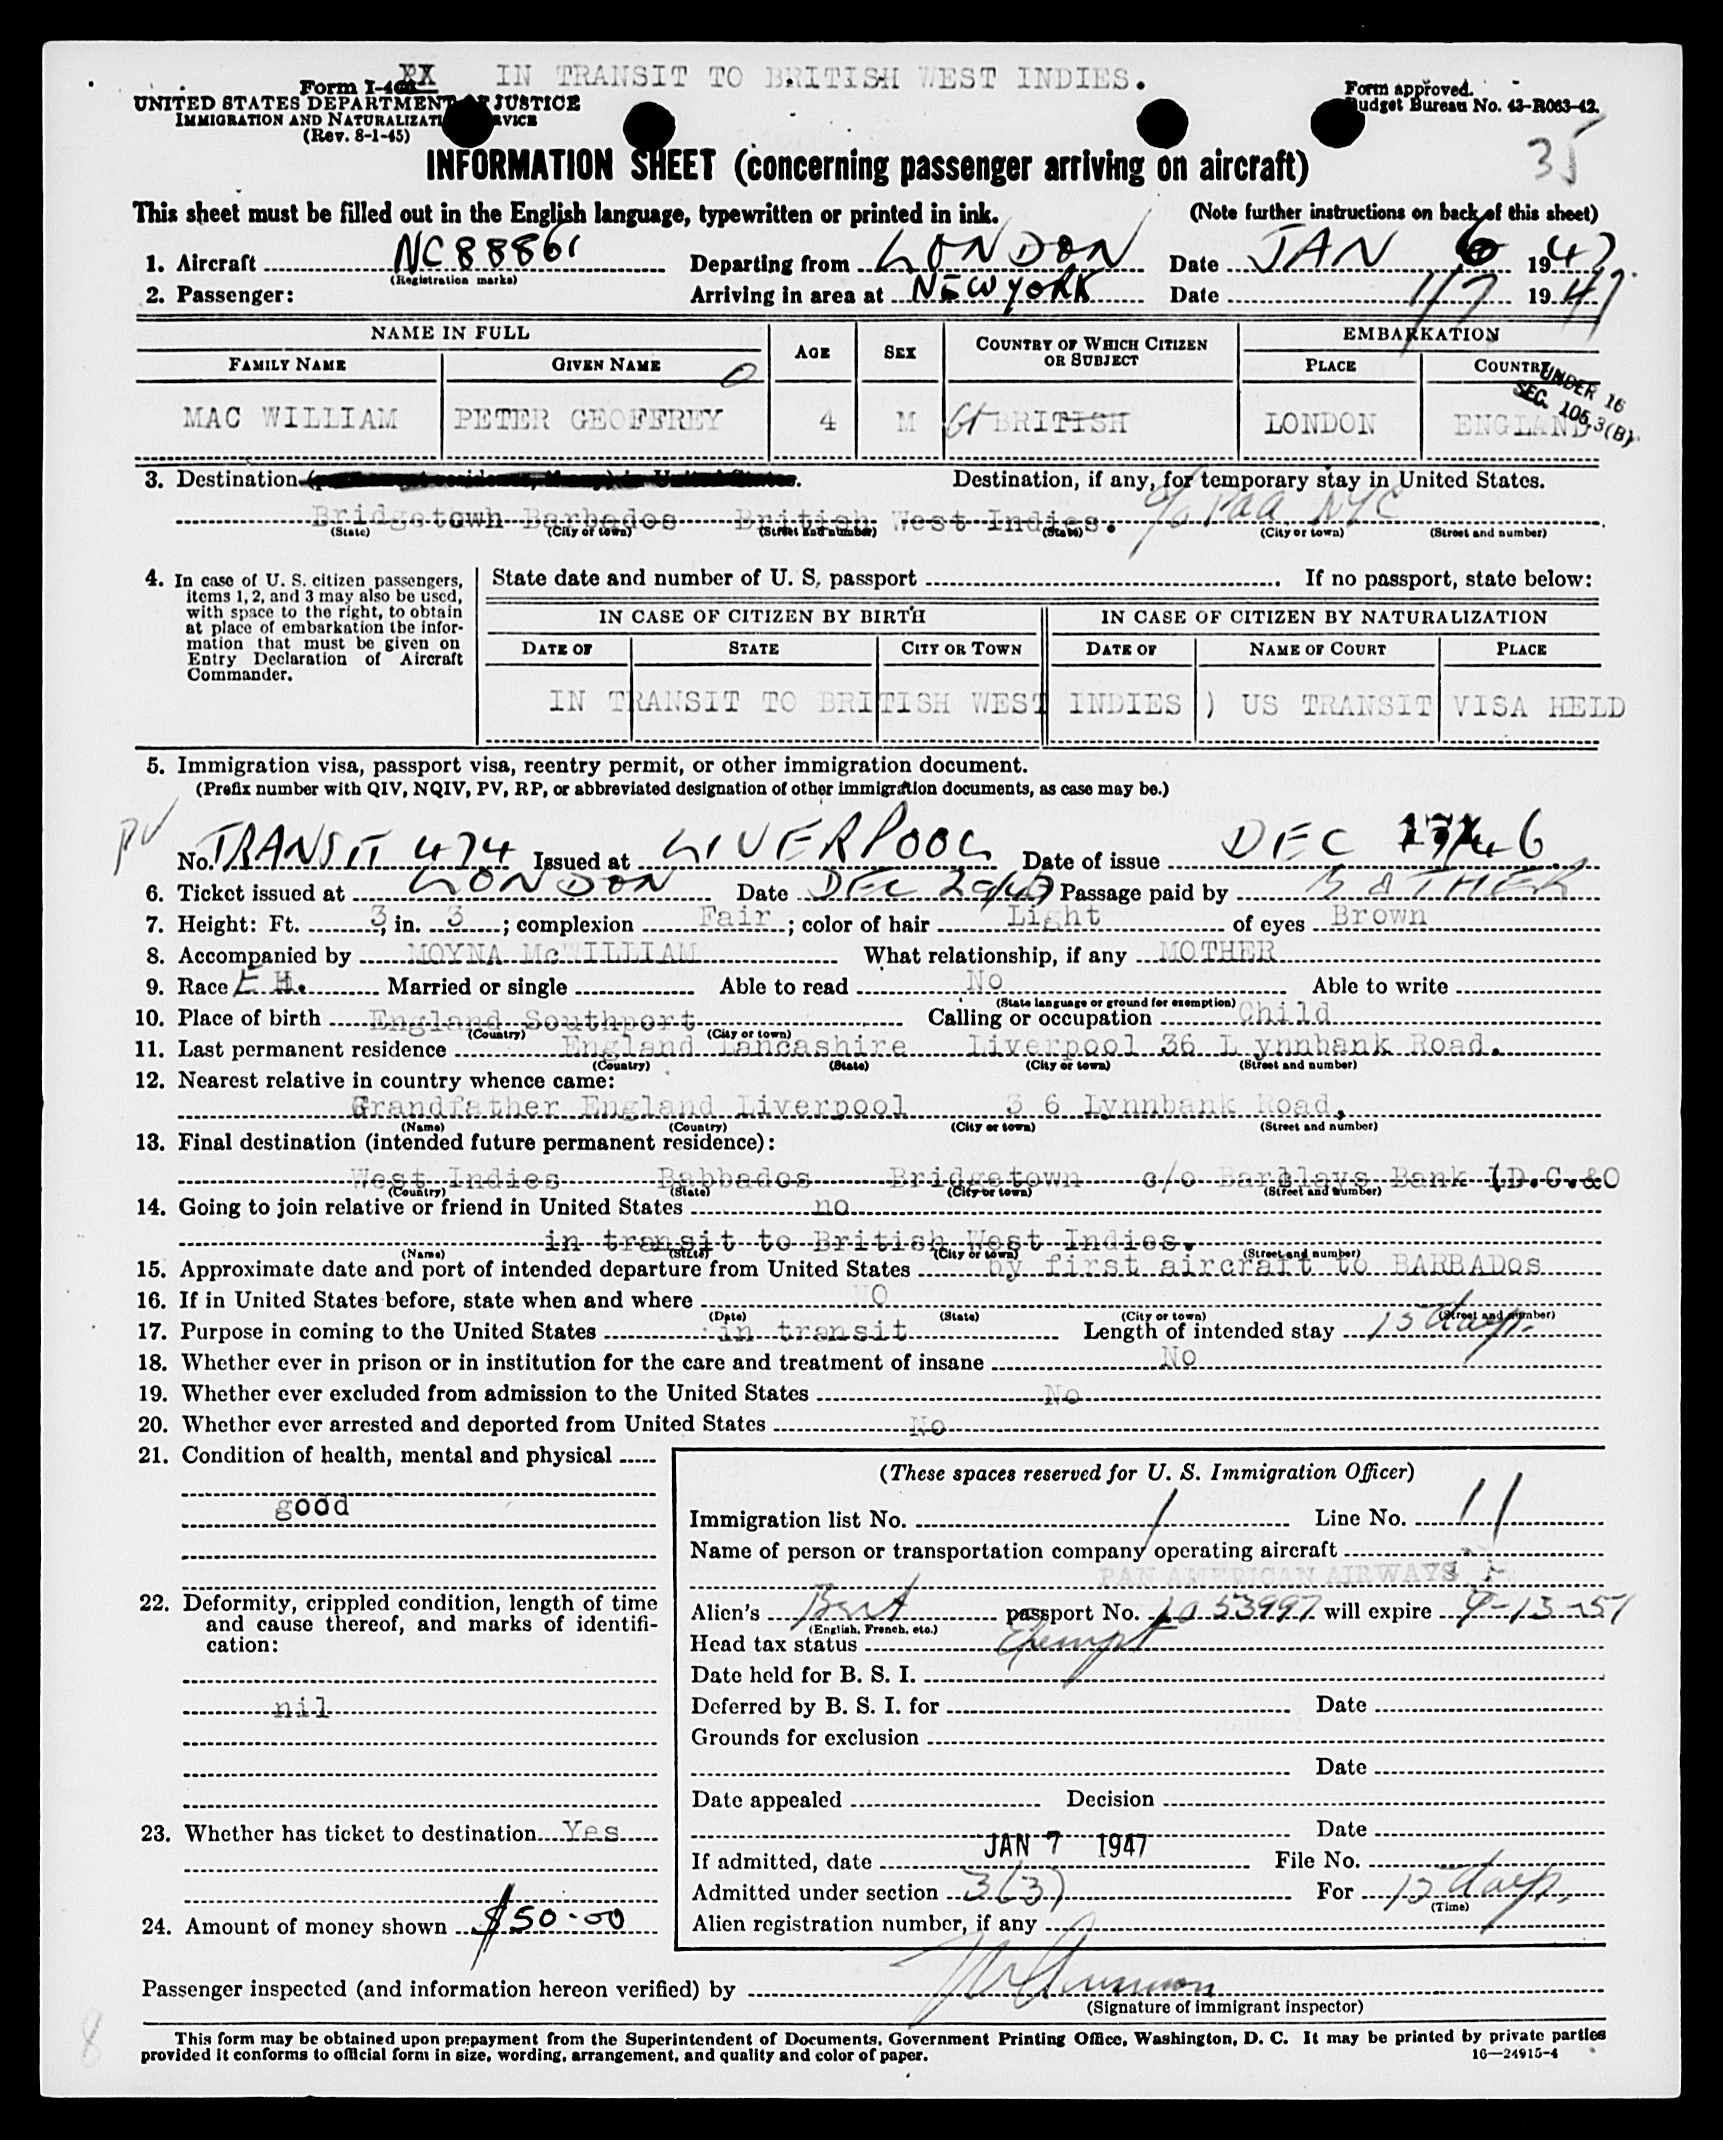 Form I-466 PX IN TRANSIT TO BRITISH WEST INDIES.
Form approved.
UNITED STATES DEPARTMENT OF JUSTICE
Budget Bureau No. 43-R063-42.
IMMIGRATION AND NATURALIZATION SERVICE
(Rev. 8-1-45)
35
INFORMATION SHEET (concerning passenger arriving on aircraft)
This sheet must be filled out in the English language, typewritten or printed in ink. (Note further instructions on back of this sheet)
1. Aircraft NC88861 Departing from LONDON Date JAN 6 1947
(Registration marks)
2. Passenger: Arriving in area at NEW YORK Date 1/7 1947
NAME IN FULL AGE SEX COUNTRY OF WHICH CITIZEN OR SUBJECT EMBARKATION
FAMILY NAME GIVEN NAME PLACE COUNTRY
UNDER 16
SEC. 105.3(B)
MAC WILLIAM PETER GEOFFREY 4 M Gt BRITISH LONDON ENGLAND
3. Destination Destination, if any, for temporary stay in United States.
Bridgetown Barbados British West Indies. c/o Paa NYC
(State) (City or town) (Street and number) (State) (City or town) (Street and number)
4. In case of U. S. citizen passengers, State date and number of U. S. passport If no passport, state below:
items 1, 2, and 3 may also be used,
with space to the right, to obtain
at place of embarkation the infor-
mation that must be given on
Entry Declaration of Aircraft
Commander.
IN CASE OF CITIZEN BY BIRTH IN CASE OF CITIZEN BY NATURALIZATION
DATE OF STATE CITY OR TOWN DATE OF NAME OF COURT PLACE
IN TRANSIT TO BRITISH WEST INDIES ) US TRANSIT VISA HELD
5. Immigration visa, passport visa, reentry permit, or other immigration document.
(Prefix number with QIV, NQIV, PV, RP, or abbreviated designation of other immigration documents, as case may be.)
PV No. TRANSIT 474 Issued at LIVERPOOL Date of issue DEC 17/46
6. Ticket issued at LONDON Date DEC Passage paid by
7. Height: Ft. 3, in. 3 ; complexion Fair ; color of hair Light of eyes Brown
8. Accompanied by MOYNA McWILLIAM What relationship, if any MOTHER
9. Race E H. Married or single Able to read No Able to write
(State language or ground for exemption)
10. Place of birth England Southport Calling or occupation Child
(Country) (City or town)
11. Last permanent residence England Lancashire Liverpool 36 L ynnbank Road.
(Country) (State) (City or town) (Street and number)
12. Nearest relative in country whence came:
Grandfather England Liverpool 3 6 Lynnbank Road,
(Name) (Country) (City or town) (Street and number)
13. Final destination (intended future permanent residence):
West Indies Babbados Bridgetown c/o Barclays Bank (D.C.&O
(Country) (State) (City or town) (Street and number)
14. Going to join relative or friend in United States no
in transit to British West Indies.
(Name) (State) (City or town) (Street and number)
15. Approximate date and port of intended departure from United States by first aircraft to BARBADos
16. If in United States before, state when and where NO
(Date) (State) (City or town) (Street and number)
17. Purpose in coming to the United States in transit Length of intended stay 15 days.
18. Whether ever in prison or in institution for the care and treatment of insane No
19. Whether ever excluded from admission to the United States No
20. Whether ever arrested and deported from United States No
21. Condition of health, mental and physical
good
22. Deformity, crippled condition, length of time
and cause thereof, and marks of identifi-
cation:
nil
23. Whether has ticket to destination Yes
24. Amount of money shown $50.00
(These spaces reserved for U. S. Immigration Officer)
Immigration list No. 1 Line No. 11
Name of person or transportation company operating aircraft
PAN AMERICAN AIRWAYS
Alien's Brit passport No. 1053997 will expire 9-13-51
(English, French, etc.)
Head tax status Exempt
Date held for B. S. I.
Deferred by B. S. I. for Date
Grounds for exclusion
Date
Date appealed Decision
Date
If admitted, date JAN 7 1947 File No.
Admitted under section 3(3) For 15 days,
(Time)
Alien registration number, if any
Passenger inspected (and information hereon verified) by
(Signature of immigrant inspector)
8
This form may be obtained upon prepayment from the Superintendent of Documents, Government Printing Office, Washington, D. C. It may be printed by private parties
provided it conforms to official form in size, wording, arrangement, and quality and color of paper.
16—24915-4